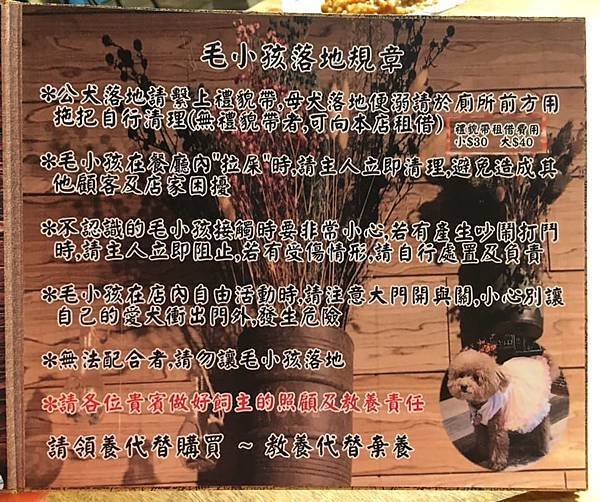 毛小孩落地規章
*公犬落地請繫上禮貌帶,母犬落地便溺請於廁所前方用
拖把自行清理(無禮貌帶者,可向本店租借)
禮貌帶租借費用
小$30 大$40
*毛小孩在餐廳內"拉尿"時,請主人立即清理,避免造成其
他顧客及店家困擾
*不認識的毛小孩接觸時要非常小心,若有產生吵鬧打鬥
時,請主人立即阻止,若有受傷情形,請自行處置及負責
*毛小孩在店內自由活動時,請注意大門開與關,小心別讓
自己的愛犬衝出門外,發生危險
*無法配合者,請勿讓毛小孩落地
*請各位貴賓做好飼主的照顧及教養責任
請領養代替購買 ~ 教養代替棄養